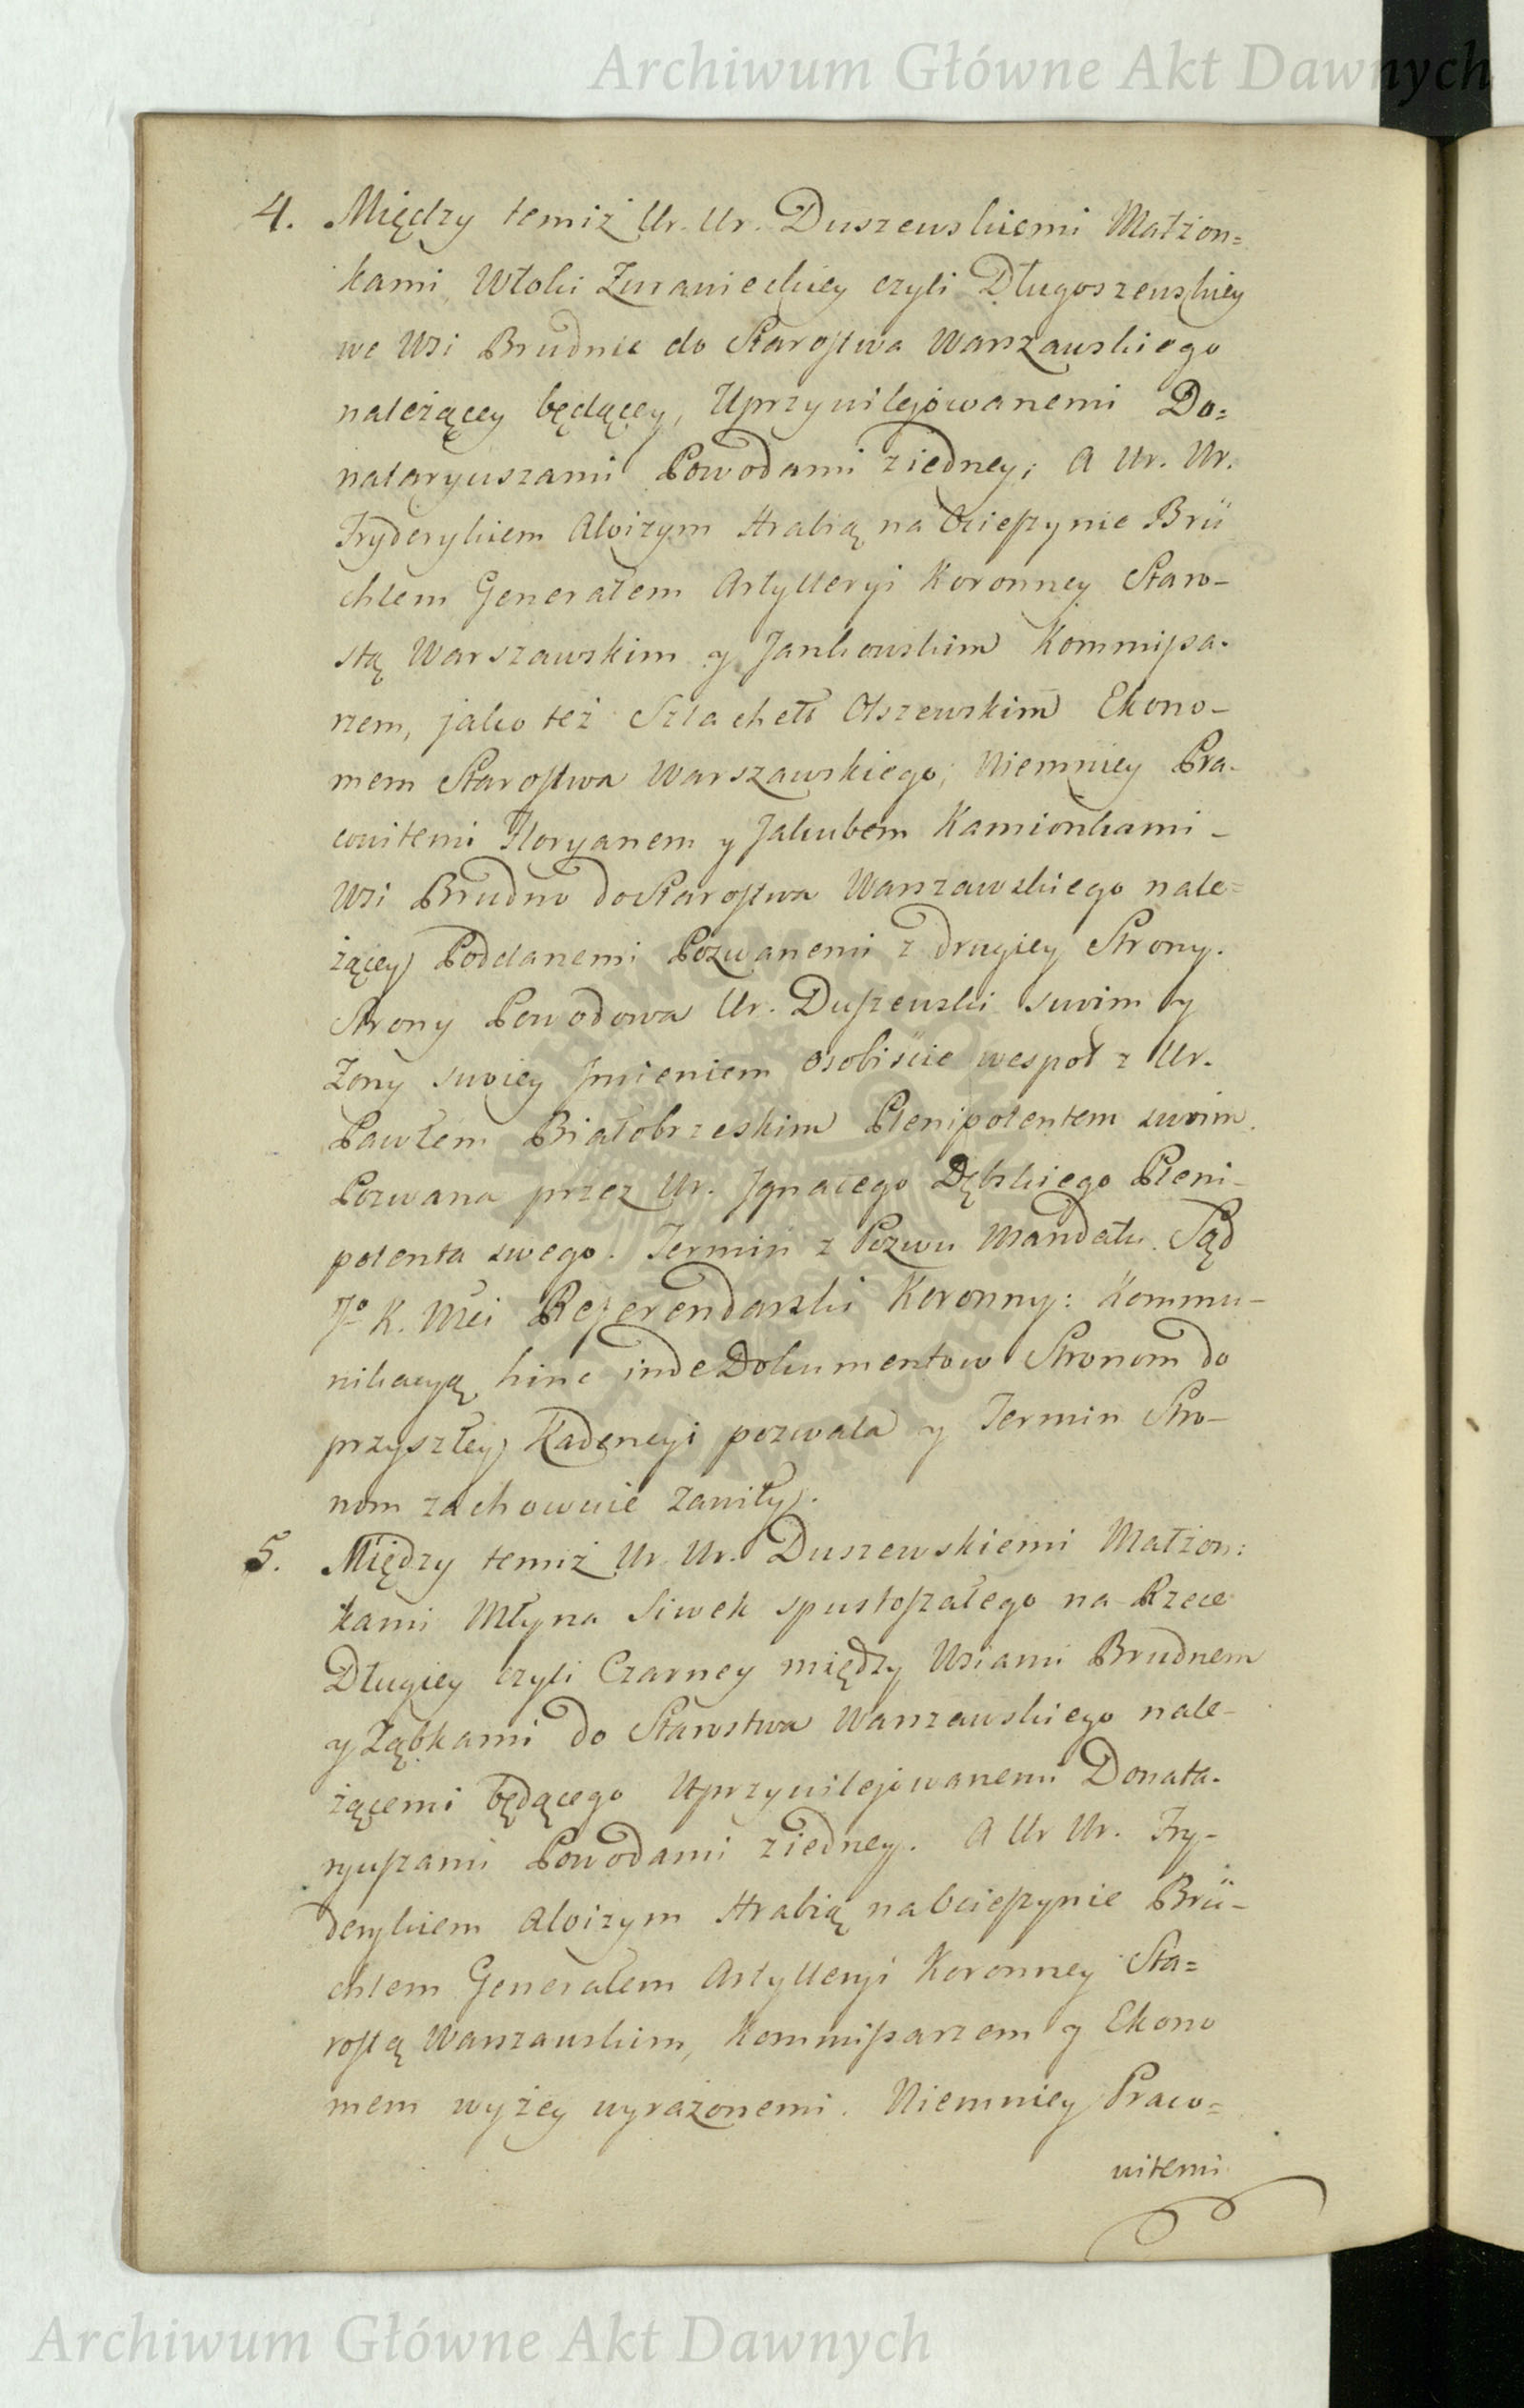 Archiwum Główne Akt Dawnych
4. Między temiż Ur. Ur. Duszewskiemi Małżon=
kami Włoki Zuranieckiey czyli Długoszewskiey
we Wsi Brudnie do Starostwa Warszawskiego
należącey będącey, Uprzywilejowanemi Do=
nataryuszami Powodami z iedney; A Ur. Ur.
Fryderykiem Aloizym Hrabią na Ocieszynie Brü
chlem Generałem Artylleryi Koronney Staro-
stą Warszawskim y Jankowskim Kommissa-
rzem, jako też Szlachetn Olszewskim Ekono-
mem Starostwa Warszawskiego; Niemniey Pra-
cowitemi Floryanem y Jakubem Kamionkami -
Wsi Brudno do Starostwa Warszawskiego nale=
żącey Poddanemi Pozwanemi z drugiey Strony.
Strony Powodowa Ur. Duszewski swoim y
Żony swoiey Jmieniem osobiście wespoł z Ur.
Pawłem Białobrzeskim Plenipotentem swoim.
Pozwana przez Ur. Jgnacego Dębskiego Pleni-
potenta swego. Termin z Pozwu Mandatu. Sąd
Jo K. Mci Referendarski Koronny: Kommu-
nikacyą hinc inde Dokumentow Stronom do
przyszłey Kadencyi pozwala y Termin Stro-
nom zachowuie zawiły.
5. Między temiż Ur. Ur. Duszewskiemi Małżon:
kami Młyna Siwek spustoszałego na Rzece
Długiey czyli Czarney między Wsiami Brudnem
y Ząbkami do Starostwa Warszawskiego nale-
żącemi będącego Uprzywilejowanemi Donata-
ryuszami Powodami z iedney. A Ur Ur. Fry-
derykiem Aloizym Hrabią na Ocieszynie Brü-
chlem Generałem Artylleryi Koronney Sta=
rostą Warszawskim, Kommissarzem y Ekono
mem wyżey wyrażonemi. Niemniey Praco=
witemi
Archiwum Główne Akt Dawnych